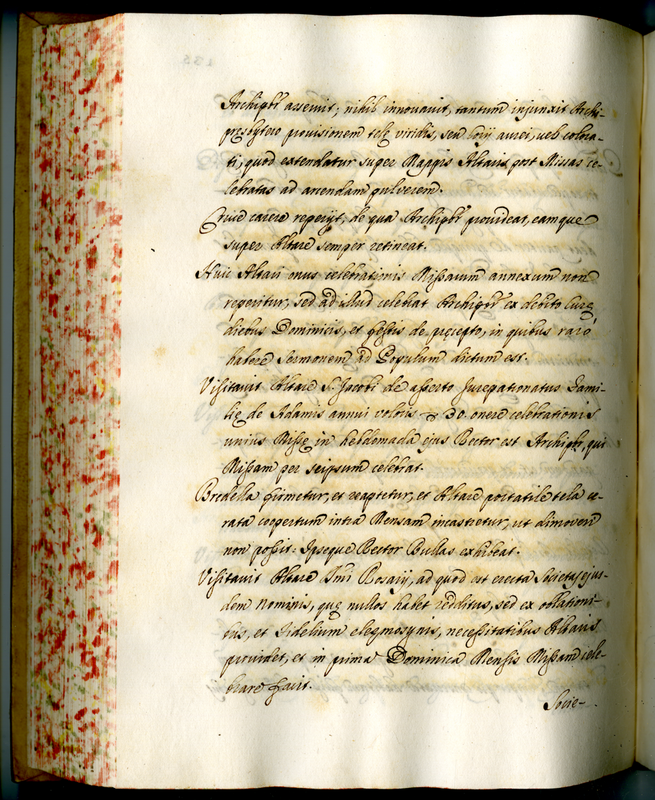 Archipbr̃ asseruit; nihil innovavit, tantum injunxit Archi-
presbytero provisionem telę viridis, seu Corij aurei, vel colora-
ti, quod extendatur super Mappis Altaris post Missas ce-
lebratas ad arcendam pulverem.
Cruce carere reperijt, de qua Archipbr̃ provideat, eamque
super Altare semper retineat.
Huic Altari onus celebrationis Missarum annexum non
reperitur, sed ad illud celebrat Archipbr̃ ex debito Curę,
diebus Dominicis, et festis de pręcepto, in quibus raro
habere sermonem ad Populum dictum est.
Visitavit Altare S. Jacobi de asserto Jurepationatus Fami-
lię de Adamis annui valoris 30. onere celebrationis
unius Missę in hebdomada ejus Rector est Archipbr̃, qui
Missam per seipsum celebrat.
Bredella firmetur, et reaptetur, et Altare portatile tela ce-
rata coopertum intra Mensam incastretur, ut dimoveri
non possit. Ipseque Rector Bullas exhibeat.
Visitavit Altare Smi Rosarij, ad quod est erecta Societas ejus-
dem nominis, quę nullos habet redditus, sed ex oblationi-
bus, et Fidelium eleęmosynis, necessitatibus Altaris
providet, et in prima Dominica Mensis Missam cele-
brare facit.
Socie-